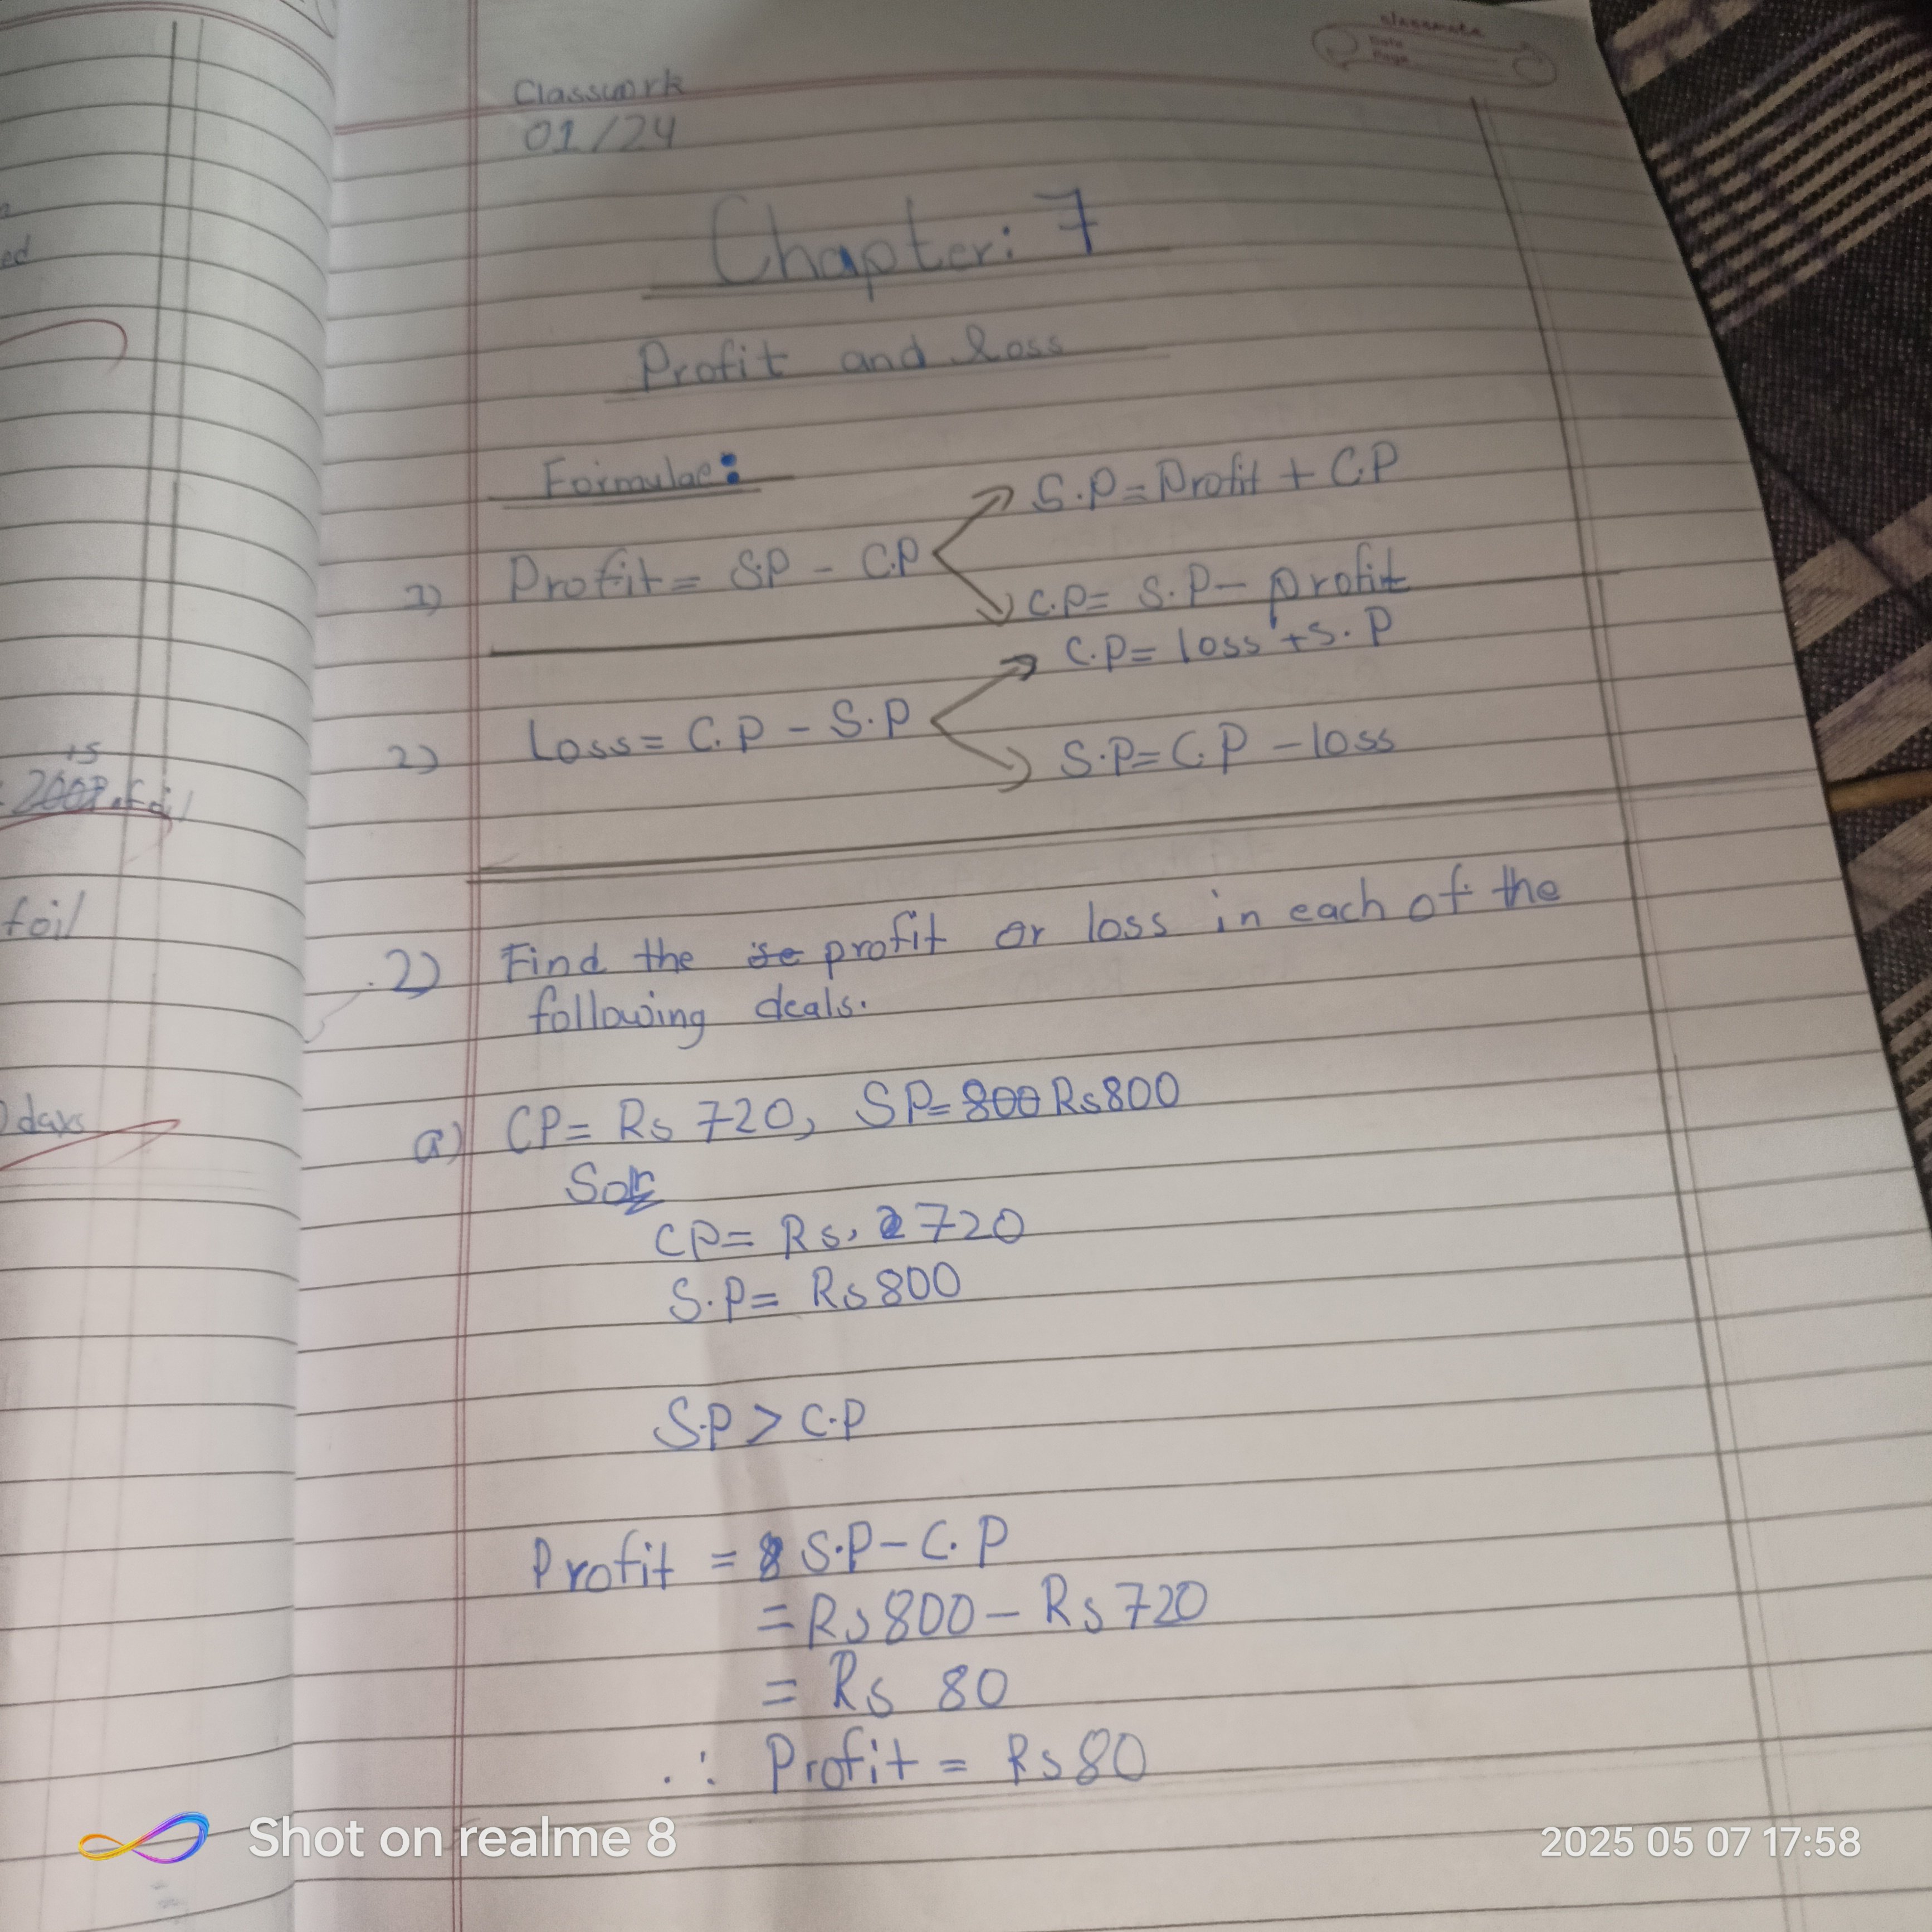 classmate
Date
Page
Classwork
01/24
Chapter: 7
Profit and loss
Formulae:
1) Profit = S.P - C.P
S.P = Profit + C.P
C.P = S.P - profit
2) Loss = C.P - S.P
C.P = loss + S.P
S.P = C.P - loss
2) Find the profit or loss in each of the
following deals.
a) CP = Rs 720, SP = 800 Rs 800
Soln
CP = Rs. 720
S.P = Rs 800
S.P > C.P
Profit = S.P - C.P
= Rs 800 - Rs 720
= Rs 80
∴ Profit = Rs 80
ed
+5
foil
days
Shot on realme 8
2025 05 07 17:58